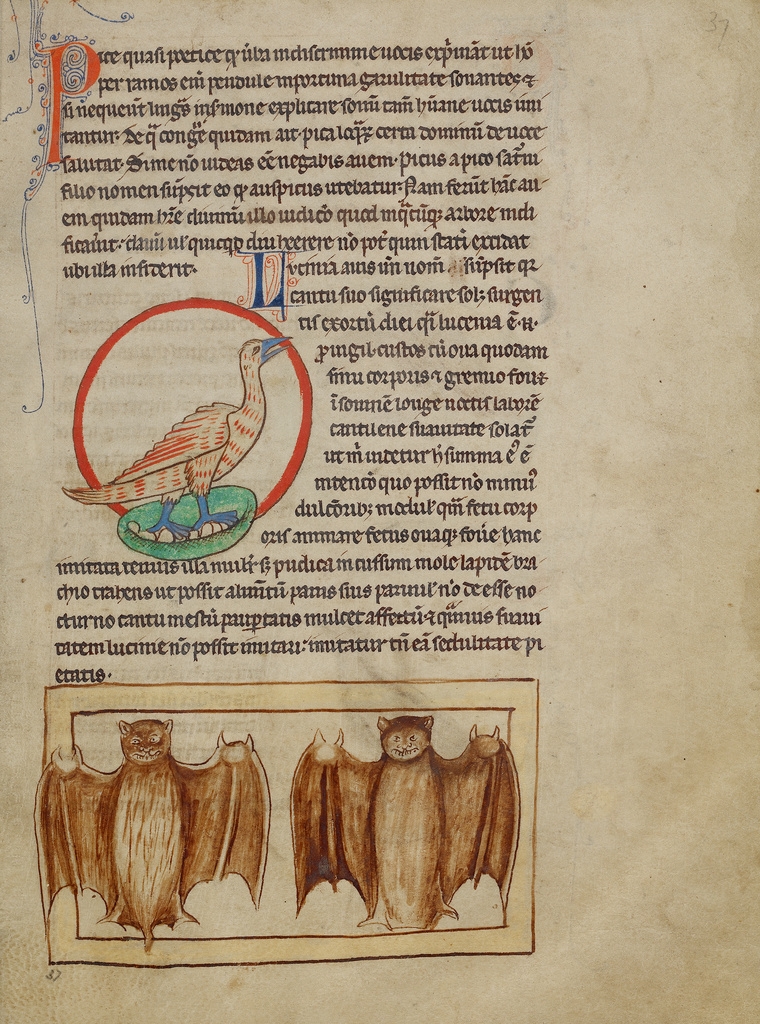 37
Pice quasi poetice qr̄ ūba indiscrimine uocis exp̄māt ut hō
per ramos eīm pendule inportuna garulitate sonantes ⁊
si nequeunt linguis in sermone explicare sonū tam̄ hūane uocis imi
tantur. De q̄ congͬue quidam ait. pica loqͣx certa dominū de uoce
salutat. Si me nō uideas eē negabis auem. Picus a pico sat̄ni
filio nomen sūpsit eo qͩ auspiciis utebatur. Nam ferūt hāc au
em quidam hr̄e diuinū illo iudicō quod in q̄cūqꝫ arbore nidi
ficauīt. clauū ul̄ quicqͩ diu heerere nō pot̄ quin stati excidat
ubi illa insiderit.
Lucinia auis īn nom̄ sūpsit qr
cantu suo significare solꝫ surgen
tis exortū diei q̄i lucenia ē. H.
ꝑuigil custos cū oua quodam
sinu corporis ⁊ gremio fouꝫ
īsomnē longe noctis laborē
cantilene suauitate solat̄
ut m̄ uidetur h̄ summa ei᾽ ē
intencō quo possit nō minū
dulcōribꝫ modul᾽ qm̄ fetu corp
oris animare fetus oua qꝫ fouē hanc
imitata tenuis illa mulr̄ sꝫ pudica incussum mole lapidē bra
chio trahens ut possit alim̄tū panis suis paruul᾽ nō de esse no
cturno cantu mestū paup̄tatis mulcet affectū ⁊ quīuis suaui
tatem lucinie nō possit imitari. imitatur tn̄ eā sedulitate pi
etatis.
37